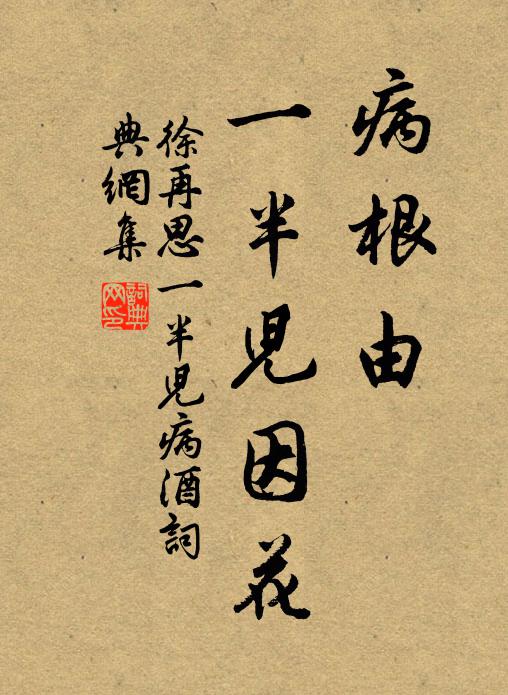 病根由
一半兒因花
徐再思一半兒病酒詞
典網集
詞典
网印